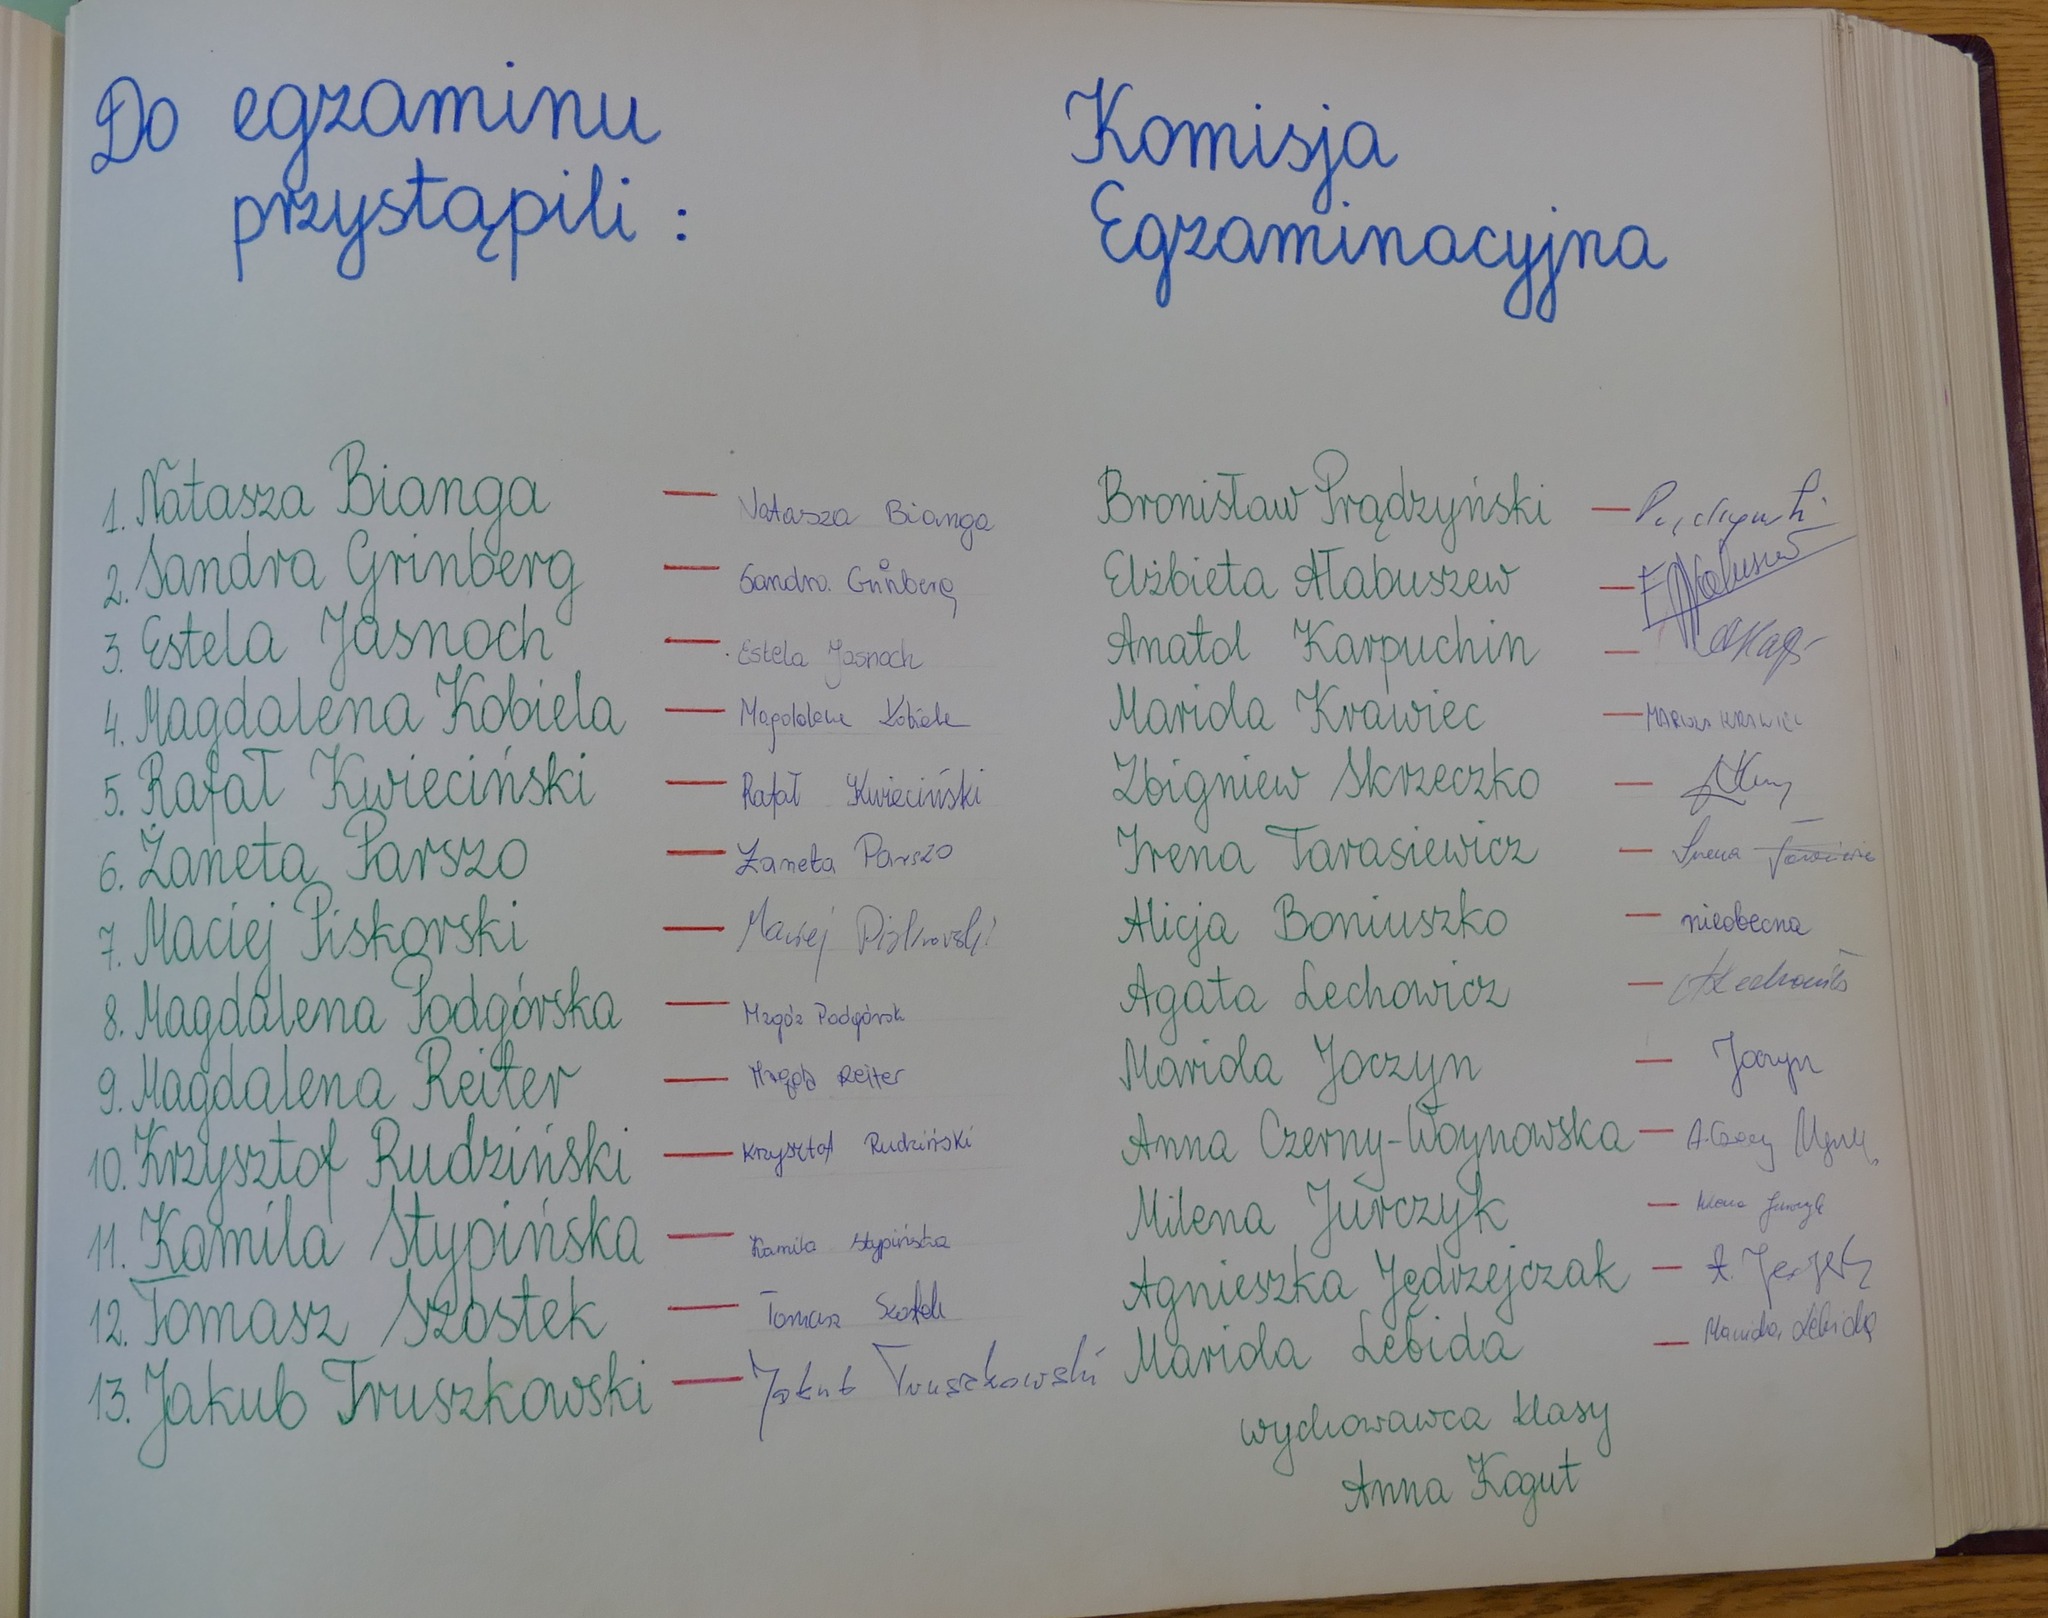 Do egzaminu
przystąpili :
1. Natasza Bianga — Natasza Bianga
2. Sandra Grinberg — Sandra Grinberg
3. Estela Jasnoch — Estela Jasnoch
4. Magdalena Kobiela — Magdalena Kobiela
5. Rafał Kwieciński — Rafał Kwieciński
6. Żaneta Parszo — Żaneta Parszo
7. Maciej Piskorski — Maciej Piskorski
8. Magdalena Podgórska — Podgórsk
9. Magdalena Reiter — Magda Reiter
10. Krzysztof Rudziński — Krzysztof Rudziński
11. Kamila Stypińska — Kamila Stypińska
12. Tomasz Szostek — Tomasz Szostek
13. Jakub Truszkowski — Jakub Truszkowski
Komisja
Egzaminacyjna
Bronisław Prądzyński —
Elżbieta Ałabuszew —
Anatol Karpuchin —
Mariola Krawiec — MARIOLA KRAWIEC
Zbigniew Skrzeczko —
Irena Tarasiewicz — Irena
Alicja Boniuszko — nieobecna
Agata Lechowicz —
Mariola Joczyn — Joczyn
Anna Czerny-Woynowska —
Milena Jurczyk — Milena Jurczyk
Agnieszka Jędrzejczak — A.
Mariola Lebida — Mariola Lebida
wychowawca klasy
Anna Kogut